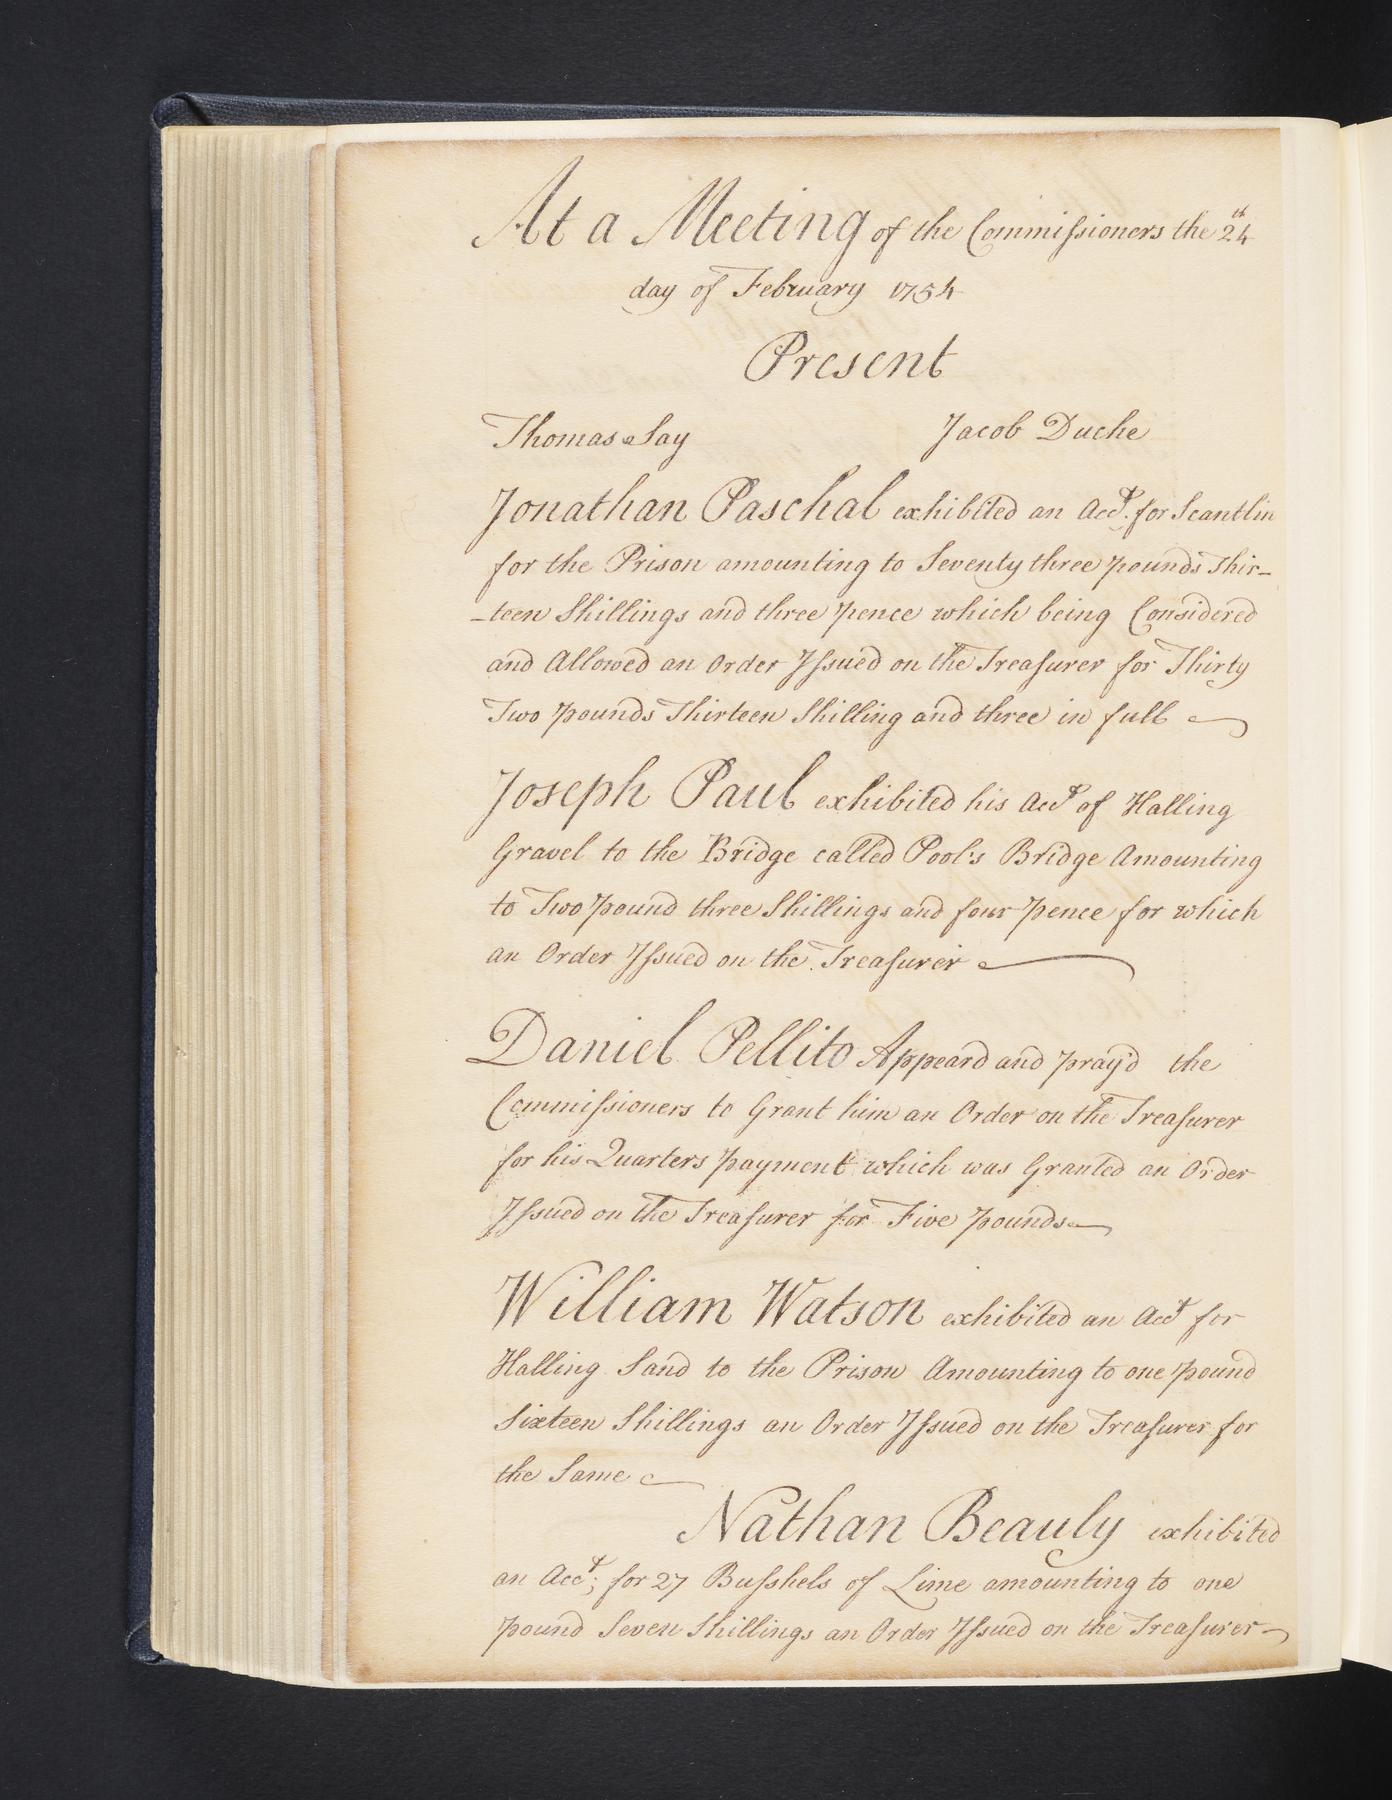 At a Meeting of the Commissioners the 24th
day of February 1754
Present
Thomas Say Jacob Duche
Jonathan Paschal exhibited an Acct. for Scantlin
for the Prison amounting to Seventy three pounds Thir-
-teen Shillings and three pence which being Considered
and Allowed an Order Issued on the Treasurer for Thirty
Two pounds Thirteen Shilling and three in full
Joseph Paul exhibited his Acct of Halling
Gravel to the Bridge called Pool's Bridge Amounting
to Two pound three Shillings and four pence for which
an Order Issued on the Treasurer
Daniel Pellito Appeard and pray'd the
Commissioners to Grant him an Order on the Treasurer
for his Quarters payment which was Granted an Order
Issued on the Treasurer for Five pounds
William Watson exhibited an Acct for
Halling Sand to the Prison Amounting to one pound
Sixteen Shillings an Order Issued on the Treasurer for
the Same
Nathan Beauly exhibited
an Acct; for 27 Busshels of Lime amounting to one
pound Seven Shillings an Order Issued on the Treasurer